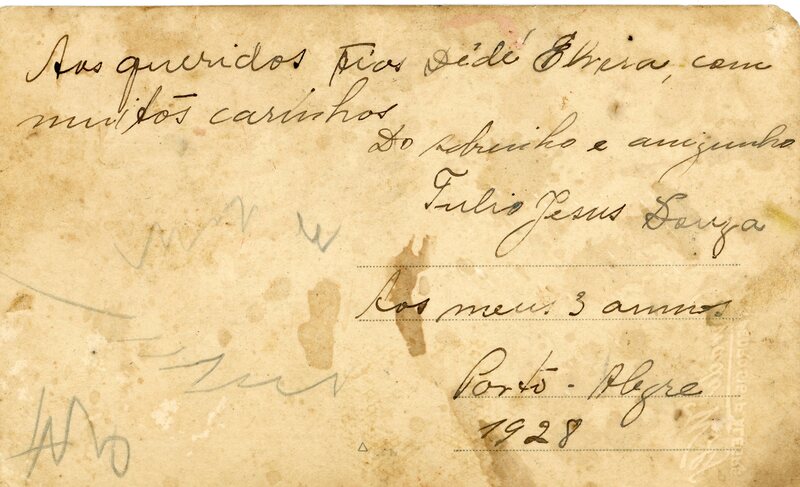 Aos queridos Tios Dédé Elvira, com
muitos carinhos
Do sobrinho e amiguinho
Tulio Jesus Souza
Aos meus 3 annos
Porto-Alegre
1928